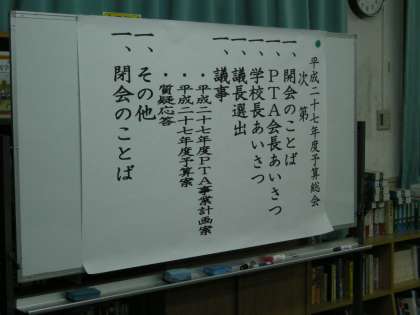 平成二十七年度予算総会
次第
一、開会のことば
一、ＰＴＡ会長あいさつ
一、学校長あいさつ
一、議長選出
一、議事
・平成二十七年度ＰＴＡ事業計画案
・平成二十七年度予算案
・質疑応答
一、その他
一、閉会のことば